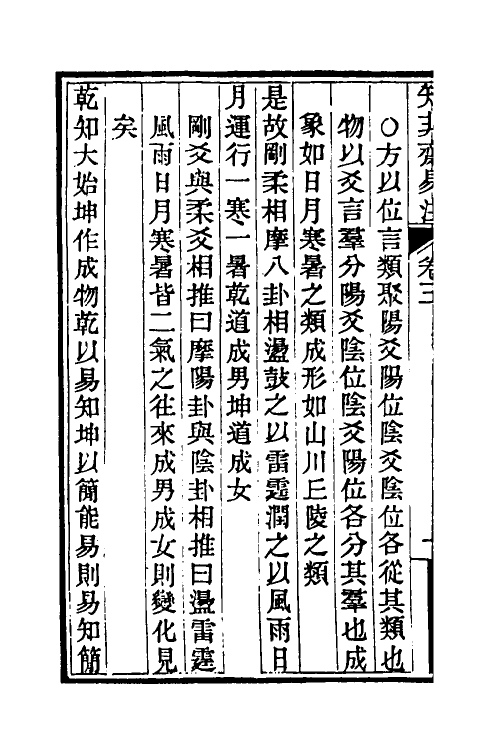 ○方以位言類聚陽爻陽位陰爻陰位各從其類也
物以爻言羣分陽爻陰位陰爻陽位各分其羣也成
象如日月寒暑之類成形如山川丘陵之類
是故剛柔相摩八卦相盪鼓之以雷霆潤之以風雨日
月運行一寒一暑乾道成男坤道成女
剛爻與柔爻相推曰摩陽卦與陰卦相推曰盪雷霆
風雨日月寒暑皆二氣之往來成男成女則變化見
矣
乾知大始坤作成物乾以易知坤以簡能易則易知簡